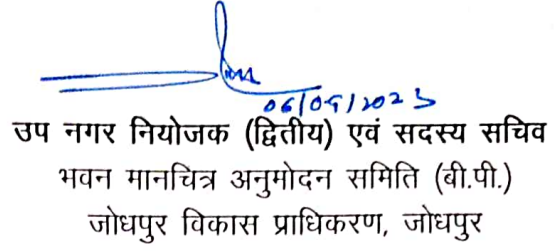 06/09/2023
उप नगर नियोजक (द्वितीय) एवं सदस्य सचिव
भवन मानचित्र अनुमोदन समिति (बी.पी.)
जोधपुर विकास प्राधिकरण, जोधपुर